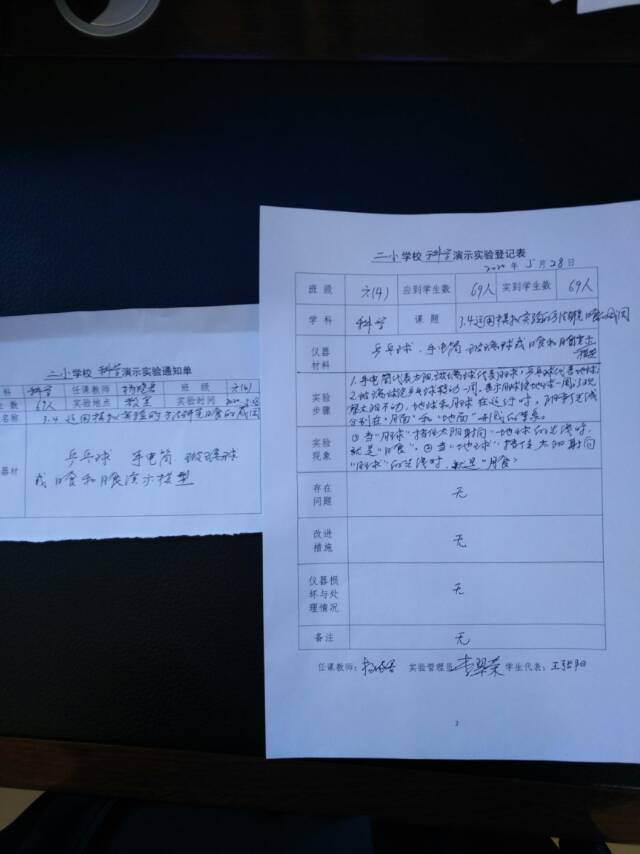 二小学校科学演示实验通知单
科 科学 任课教师 班级 六(4)
数 69人 实验地点 教室 实验时间
名称 3.4运用模拟实验的方法研究日食的成因
器材 乒乓球 手电筒 玻璃球
或日食和月食演示模型
二小学校科学演示实验登记表
5月28日
班级 六(4) 应到学生数 69人 实到学生数 69人
学科 科学 课题 3.4运用模拟实验的方法研究日食的成因
仪器材料 乒乓球、手电筒 玻璃球或日食和月食演示模型
实验步骤 1.手电筒代表太阳,玻璃球代表月球,乒乓球代表地球
2.玻璃球绕乒乓球移动一周,表示月球绕地球一周。3.
太阳不动,地球和月球在运行时,
分别在"月面"和"地面"形成的
实验现象 ①当"月球"挡住太阳射向"地球"的光线时,
就是"日食"。②当"地球"挡住太阳射向
"月球"的光线时,就是"月食"
存在问题 无
改进措施 无
仪器损坏与处理情况 无
备注 无
任课教师: 实验管理员: 李翠荣 学生代表:
2